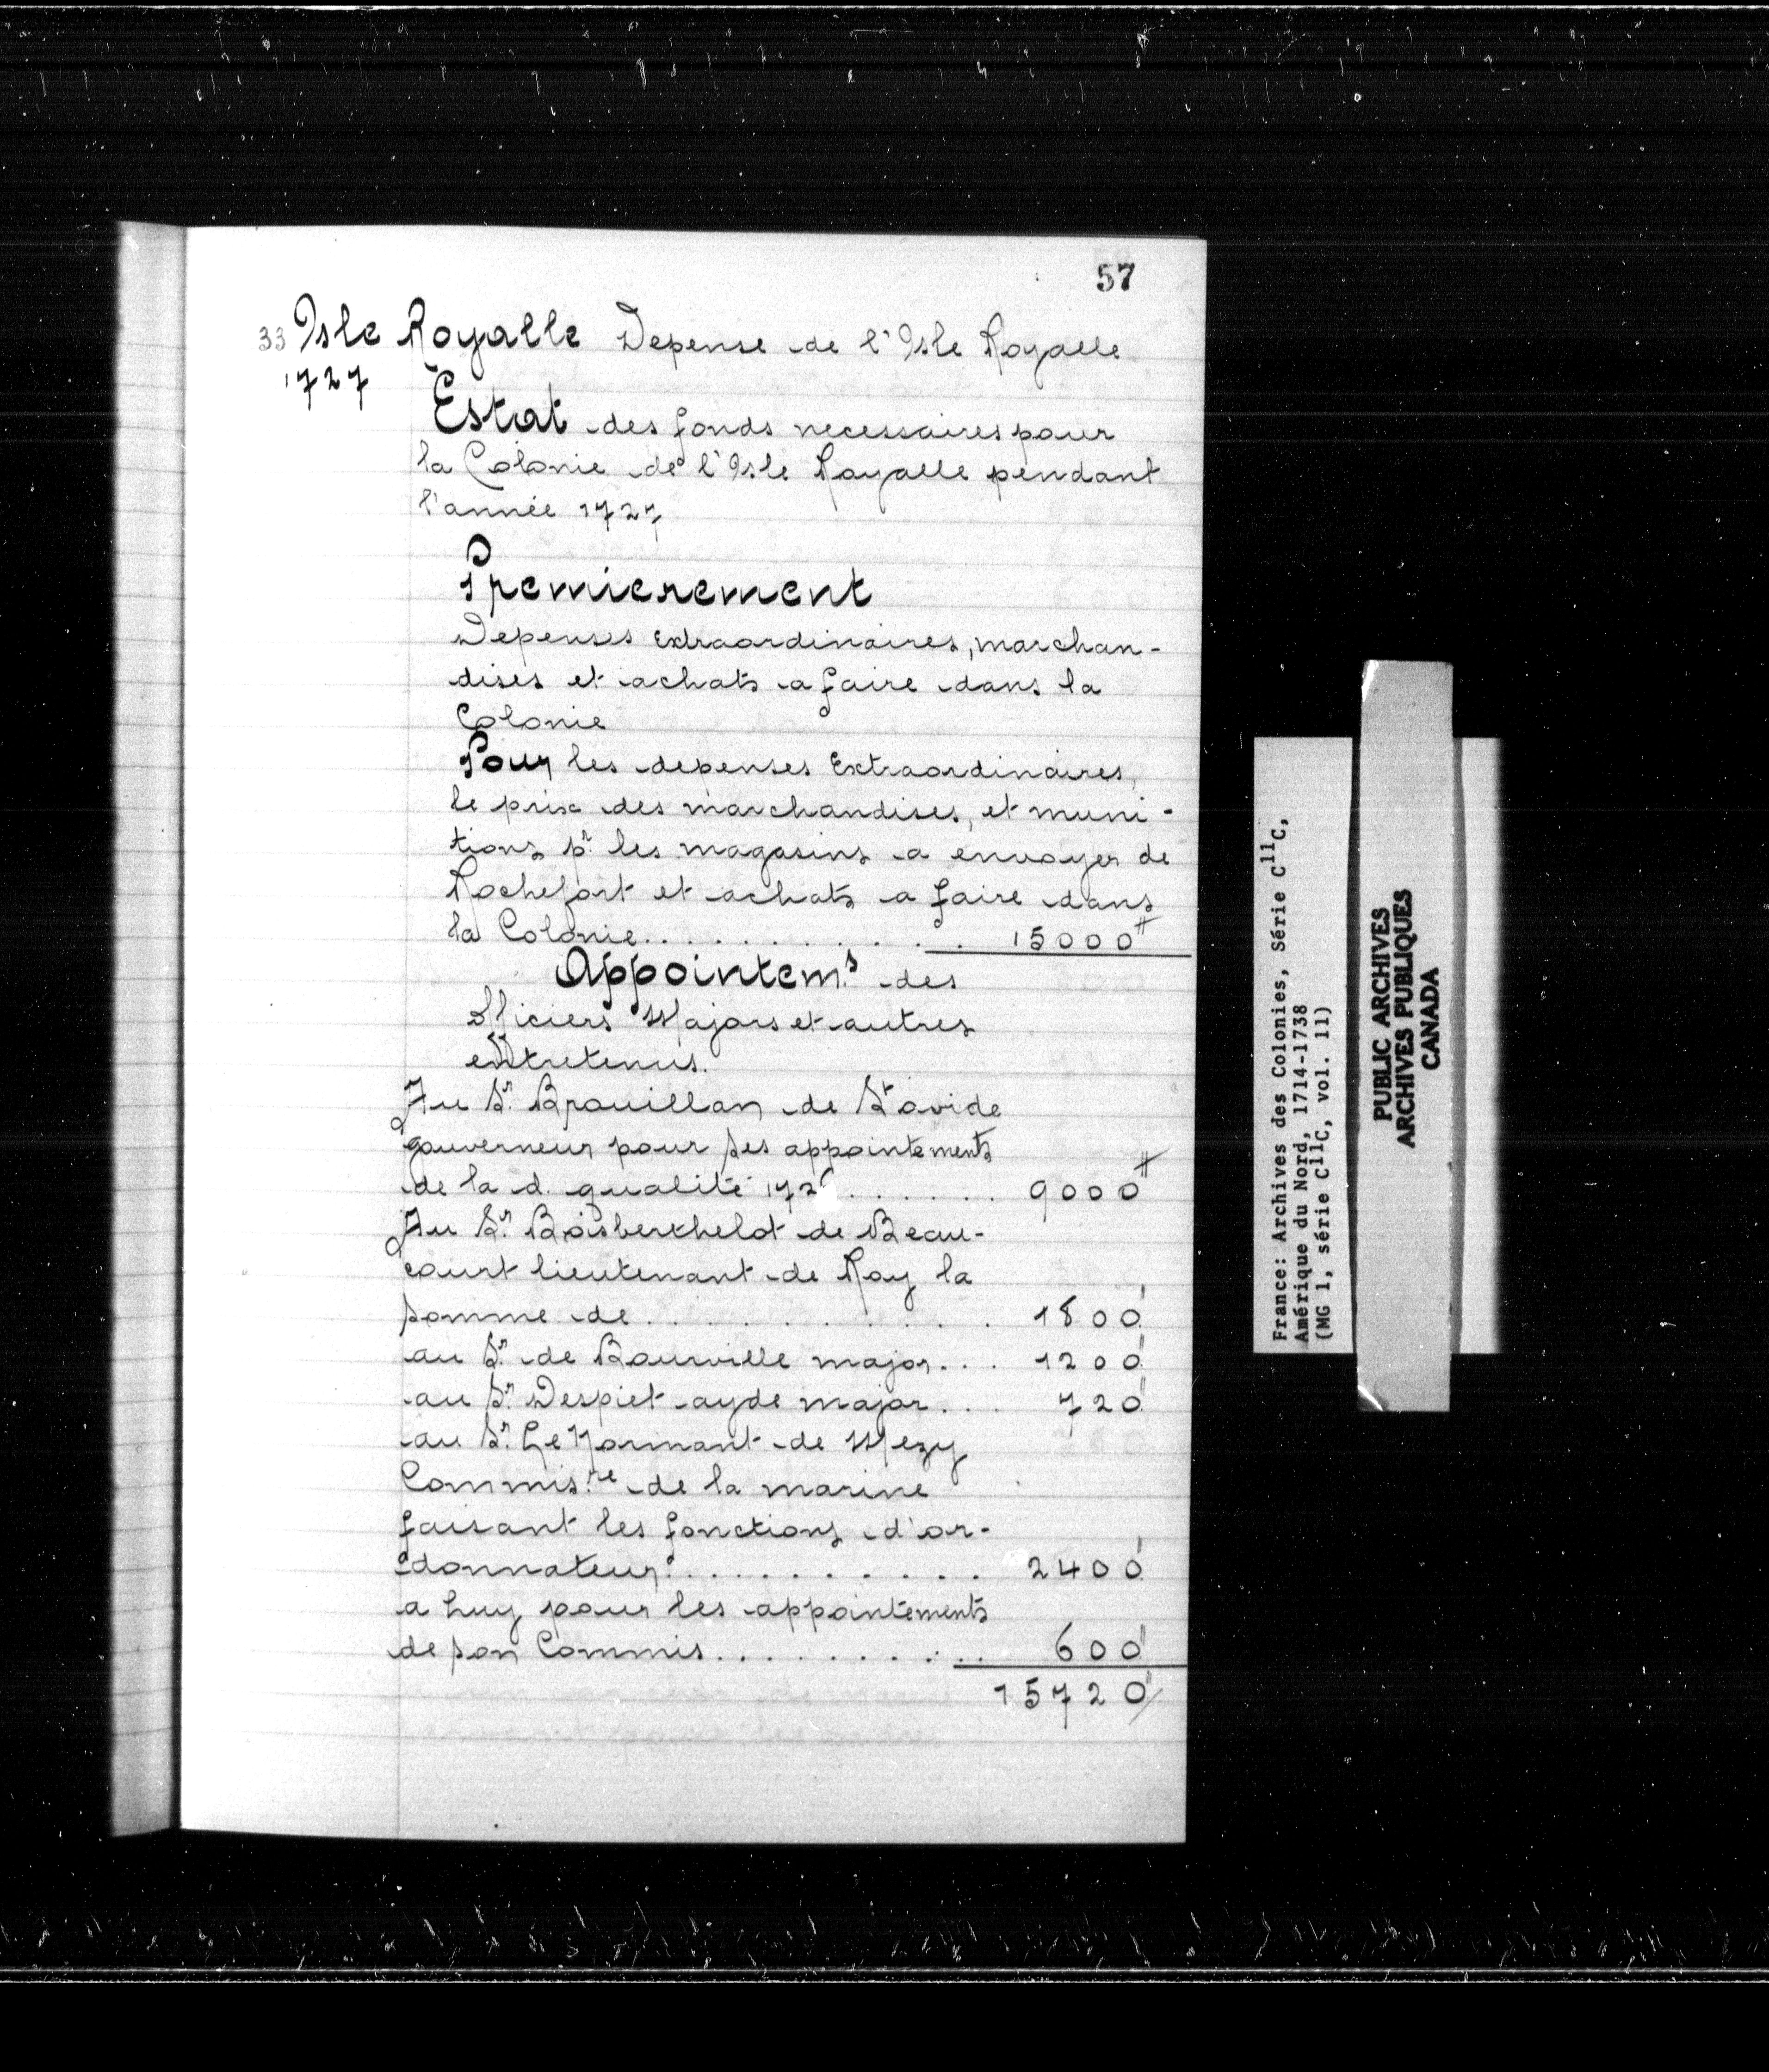 57
33 Isle Royalle Depense de l'Isle Royalle
1727
Estat des fonds necessaires pour
la Colonie de l'Isle Royalle pendant
l'année 1727
Premierement
Depenses Extraordinaires, marchan-
dises et achats a faire dans la
Colonie
Pour les depenses Extraordinaires,
le prix des marchandises, et muni-
tions pr. les magasins a envoyer de
Rochefort et achats a faire dans
la Colonie............ 15000#
Appointem.s des
officiers Majors et autres
entretenus.
Au Sr. Brouillan de St ovide
gouverneur pour ses appointements
de la d. qualité 172 ...... 9000#
Au Sr. Boisberthelot de Beau-
court lieutenant de Roy la
somme de............ 1800
au Sr. de Bourville major... 1200
au Sr. Despiet ayde major... 720
au Sr. Le Normant de Mezy
Commis.re de la marine
faisant les fonctions d'or-
donnateur........... 2400
a Luy pour les appointements
de son Commis........... 600
15720
France: Archives des Colonies, Série C11C,
Amérique du Nord, 1714-1738
(MG 1, série C11C, vol. 11)
PUBLIC ARCHIVES
ARCHIVES PUBLIQUES
CANADA